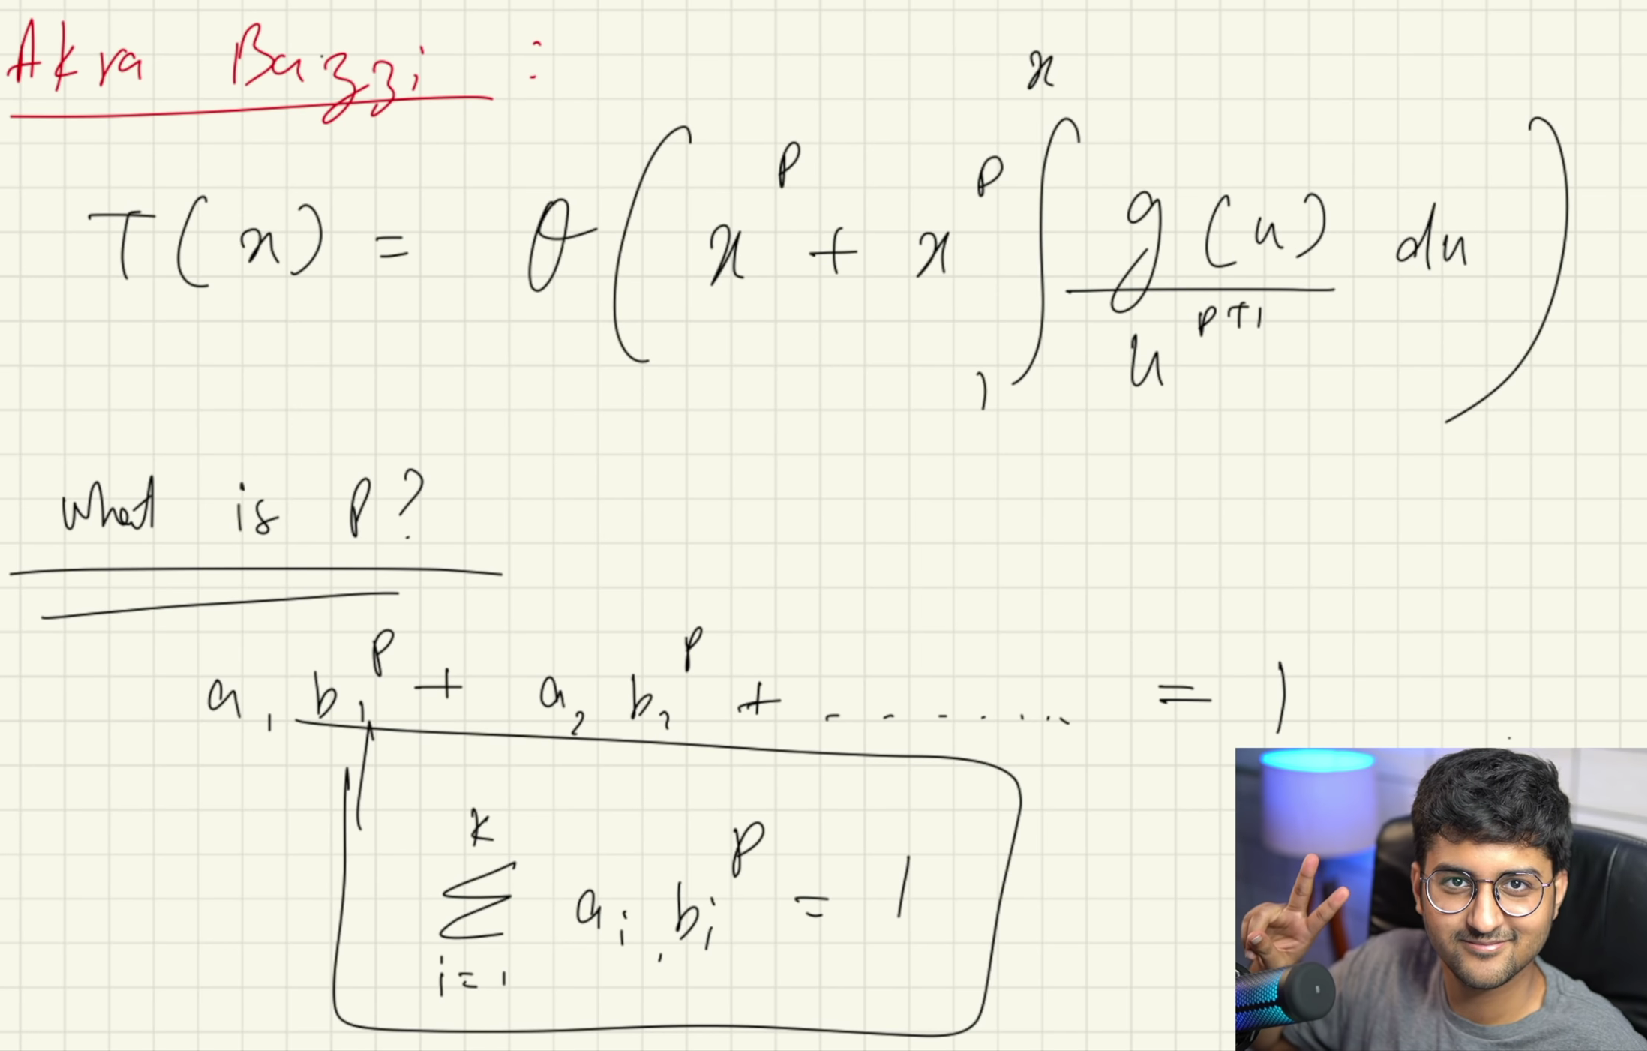 Akra Bazzi :
T(x) = θ( x^p + x^p ∫_1^x g(u)/u^(p+1) du )
What is p?
a_1 b_1^p + a_2 b_2^p + ......... = 1
∑_{i=1}^{k} a_i b_i^p = 1